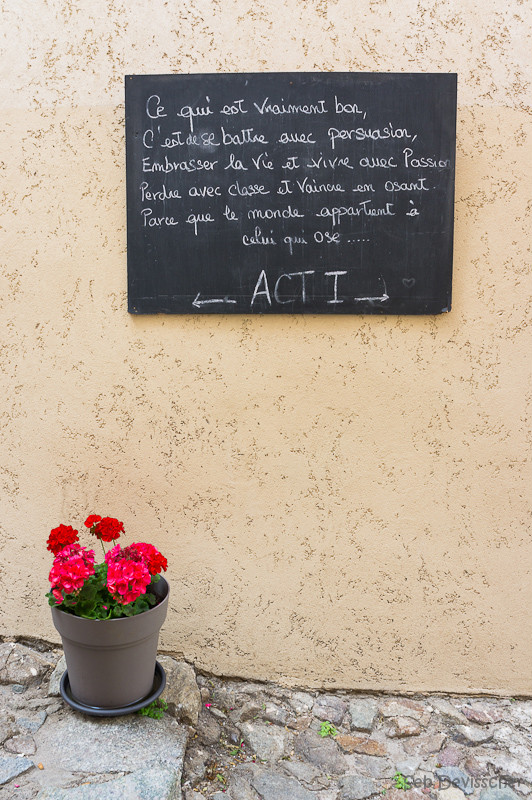 Ce qui est vraiment bon,
C'est de se battre avec persuasion,
Embrasser la Vie et vivre avec Passion
Perdre avec classe et Vaincre en osant.
Parce que le monde appartient à
celui qui ose.....
← ACT I →
Seb Devisscher